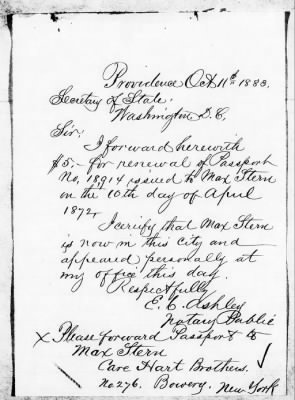 Providence Oct 11th 1883.
Secretary of State.
Washington D.C,
Sir:
I forward herewith
$5;- for renewal of Passport
No, 18914 issued to Max Stern
on the 10th day of April
1872,
I certify that Max Stern
is now in this city and
appeared personally at
my office this day.
Respectfully
E. C. Ashley
Notary Public
x Please forward Passport to
Max Stern
Care Hart Brothers.
No. 276. Bowery. New York